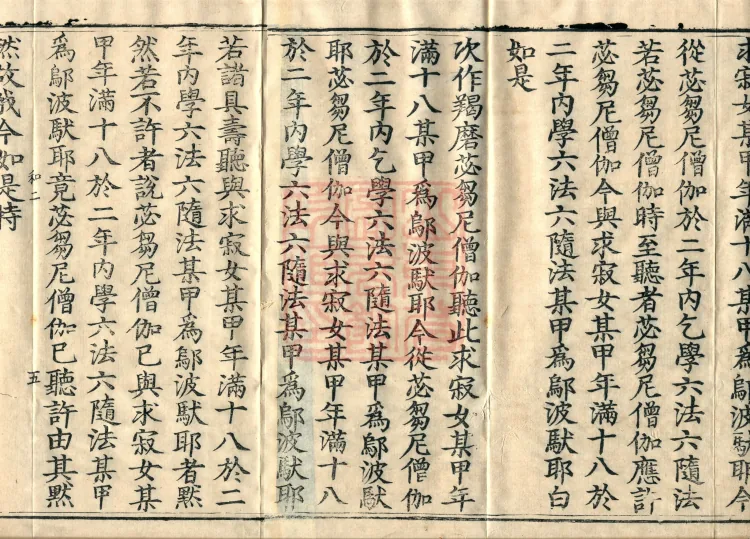 求寂女某甲年滿十八某甲爲鄔波馱耶今
從苾芻尼僧伽於二年內乞學六法六隨法
若苾芻尼僧伽時至聽者苾芻尼僧伽應許
苾芻尼僧伽今與求寂女某甲年滿十八於
二年內學六法六隨法某甲爲鄔波馱耶白
如是
次作羯磨苾芻尼僧伽聽此求寂女某甲年
滿十八某甲爲鄔波馱耶今從苾芻尼僧伽
於二年內乞學六法六隨法某甲爲鄔波馱
耶苾芻尼僧伽今與求寂女某甲年滿十八
於二年內學六法六隨法某甲爲鄔波馱耶
若諸具壽聽與求寂女某甲年滿十八於二
年內學六法六隨法某甲爲鄔波馱耶者默
然若不許者說苾芻尼僧伽已與求寂女某
甲年滿十八於二年內學六法六隨法某甲
爲鄔波馱耶竟苾芻尼僧伽已聽許由其默
和二 五
然故我今如是持